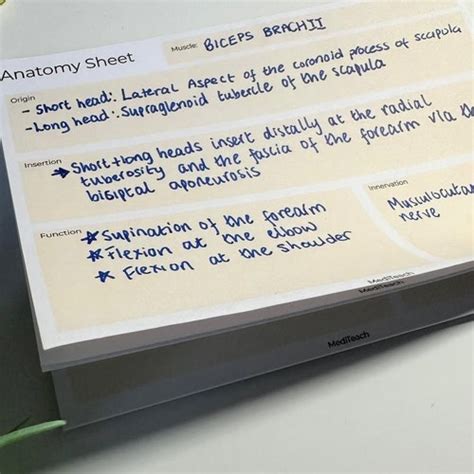 Anatomy Sheet
Muscle: BICEPS BRACHII
Origin
- Short head: Lateral Aspect of the coronoid process of scapula
- Long head: Supraglenoid tubercle of the scapula
Insertion
→ Short + long heads insert distally at the radial
tuberosity and the fascia of the forearm via the
bisiptal aponeurosis
Function
☆ Supination of the forearm
☆ Flexion at the elbow
☆ Flexion at the shoulder
Innervation
nerve
MediTeach
MediTeach
MediTeach